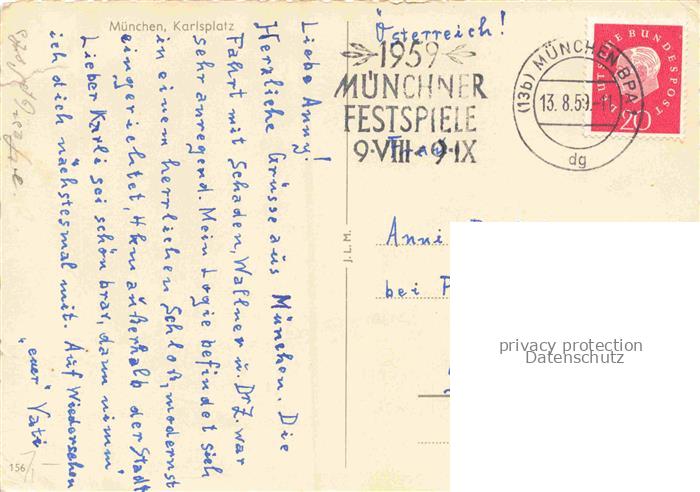 München, Karlsplatz
Liebe Anny!
Herzliche Grüsse aus München. Die
Fahrt mit Schaden, Wallner u. Dr. Z. war
sehr anregend. Mein Logie befindet sich
in einem herrlichen Schloß, modernst
eingerichtet, 4 km außerhalb der Stadt
Lieber Karli sei schön brav, dann nimm
ich dich nächstesmal mit. Auf Wiedersehen
"euer" Vati
156
J.L.M.
Österreich!
1959
MÜNCHNER
FESTSPIELE
9·VIII-9·IX
(13b) MÜNCHEN BPA
13.8.59-11
dg
DEUTSCHE BUNDESPOST
20
Anni
bei
privacy protection
Datenschutz